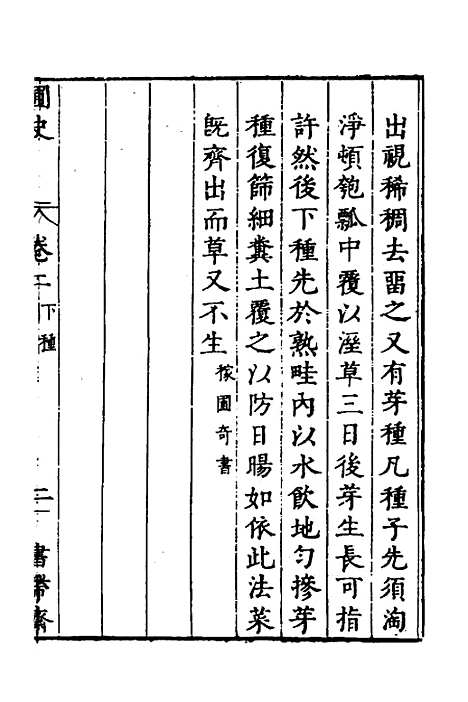 出視稀稠去畱之又有芽種凡種子先須淘
淨頓匏瓢中覆以溼草三日後芽生長可指
許然後下種先於熟畦內以水飲地勻摻芽
種復篩細糞土覆之以防日暘如依此法菜
旣齊出而草又不生 稼圃奇書
圃史 卷二 下種 二 書帶齋